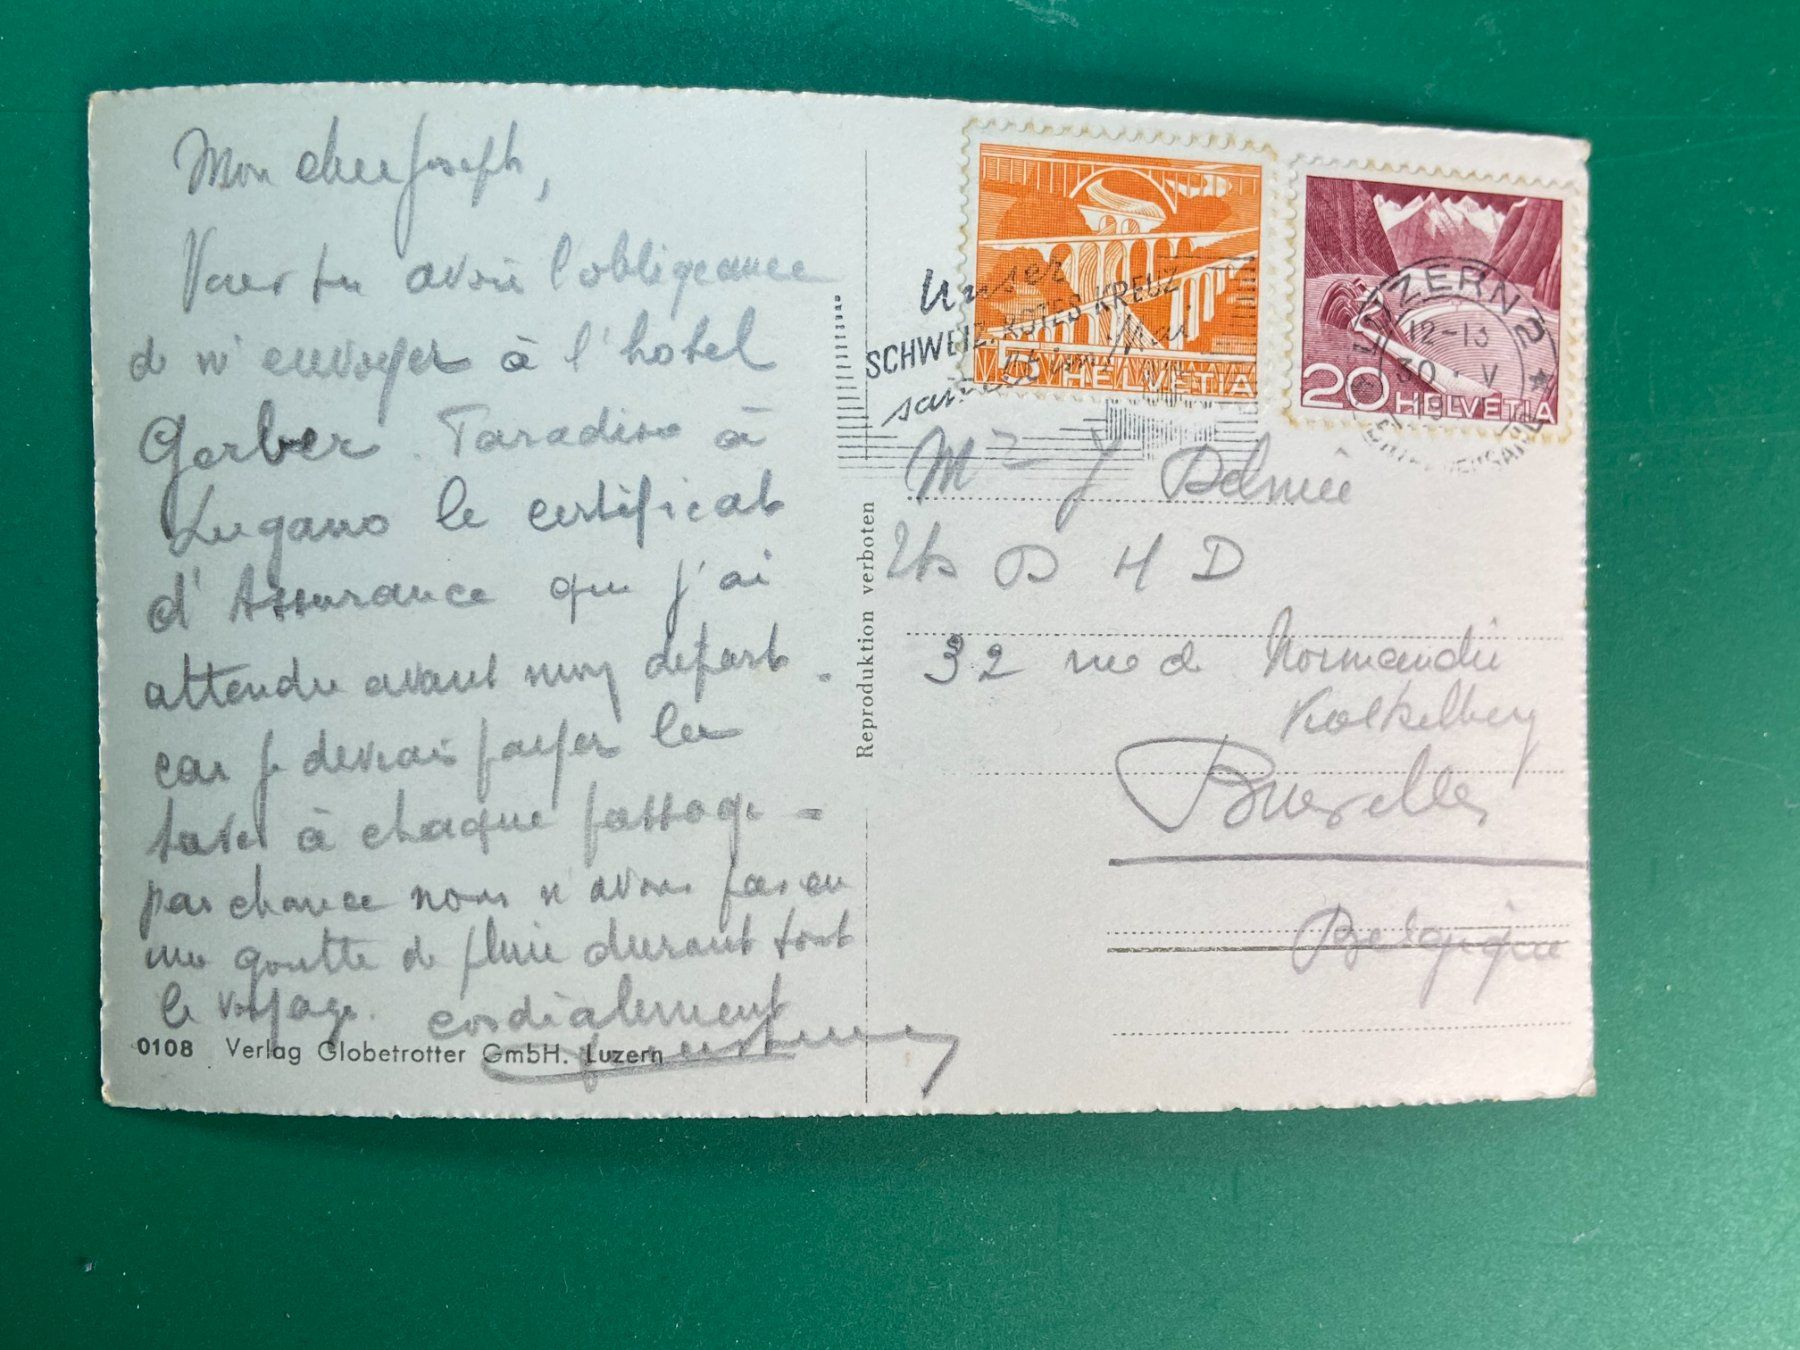 Mon cher Joseph,
Veux tu avoir l'obligeance
de m'envoyer à l'hotel
Gerber. Paradiso à
Lugano le certificat
d'Assurance que j'ai
attendu avant mon depart.
car je devrais payer les
taxes à chaque passage =
par chance nous n'avons pas eu
une goutte de pluie durant tout
le voyage. cordialement
0108 Verlag Globetrotter GmbH. Luzern
Reproduktion verboten
Unser
SCHWEIZ. ROTES KREUZ
sammelt im Mai
5 HELVETIA
20 HELVETIA
LUZERN 2
12-13
30. V
Mr J
Ets D H D
32 rue de Normandie
Koekelberg
Bruxelles
Belgique